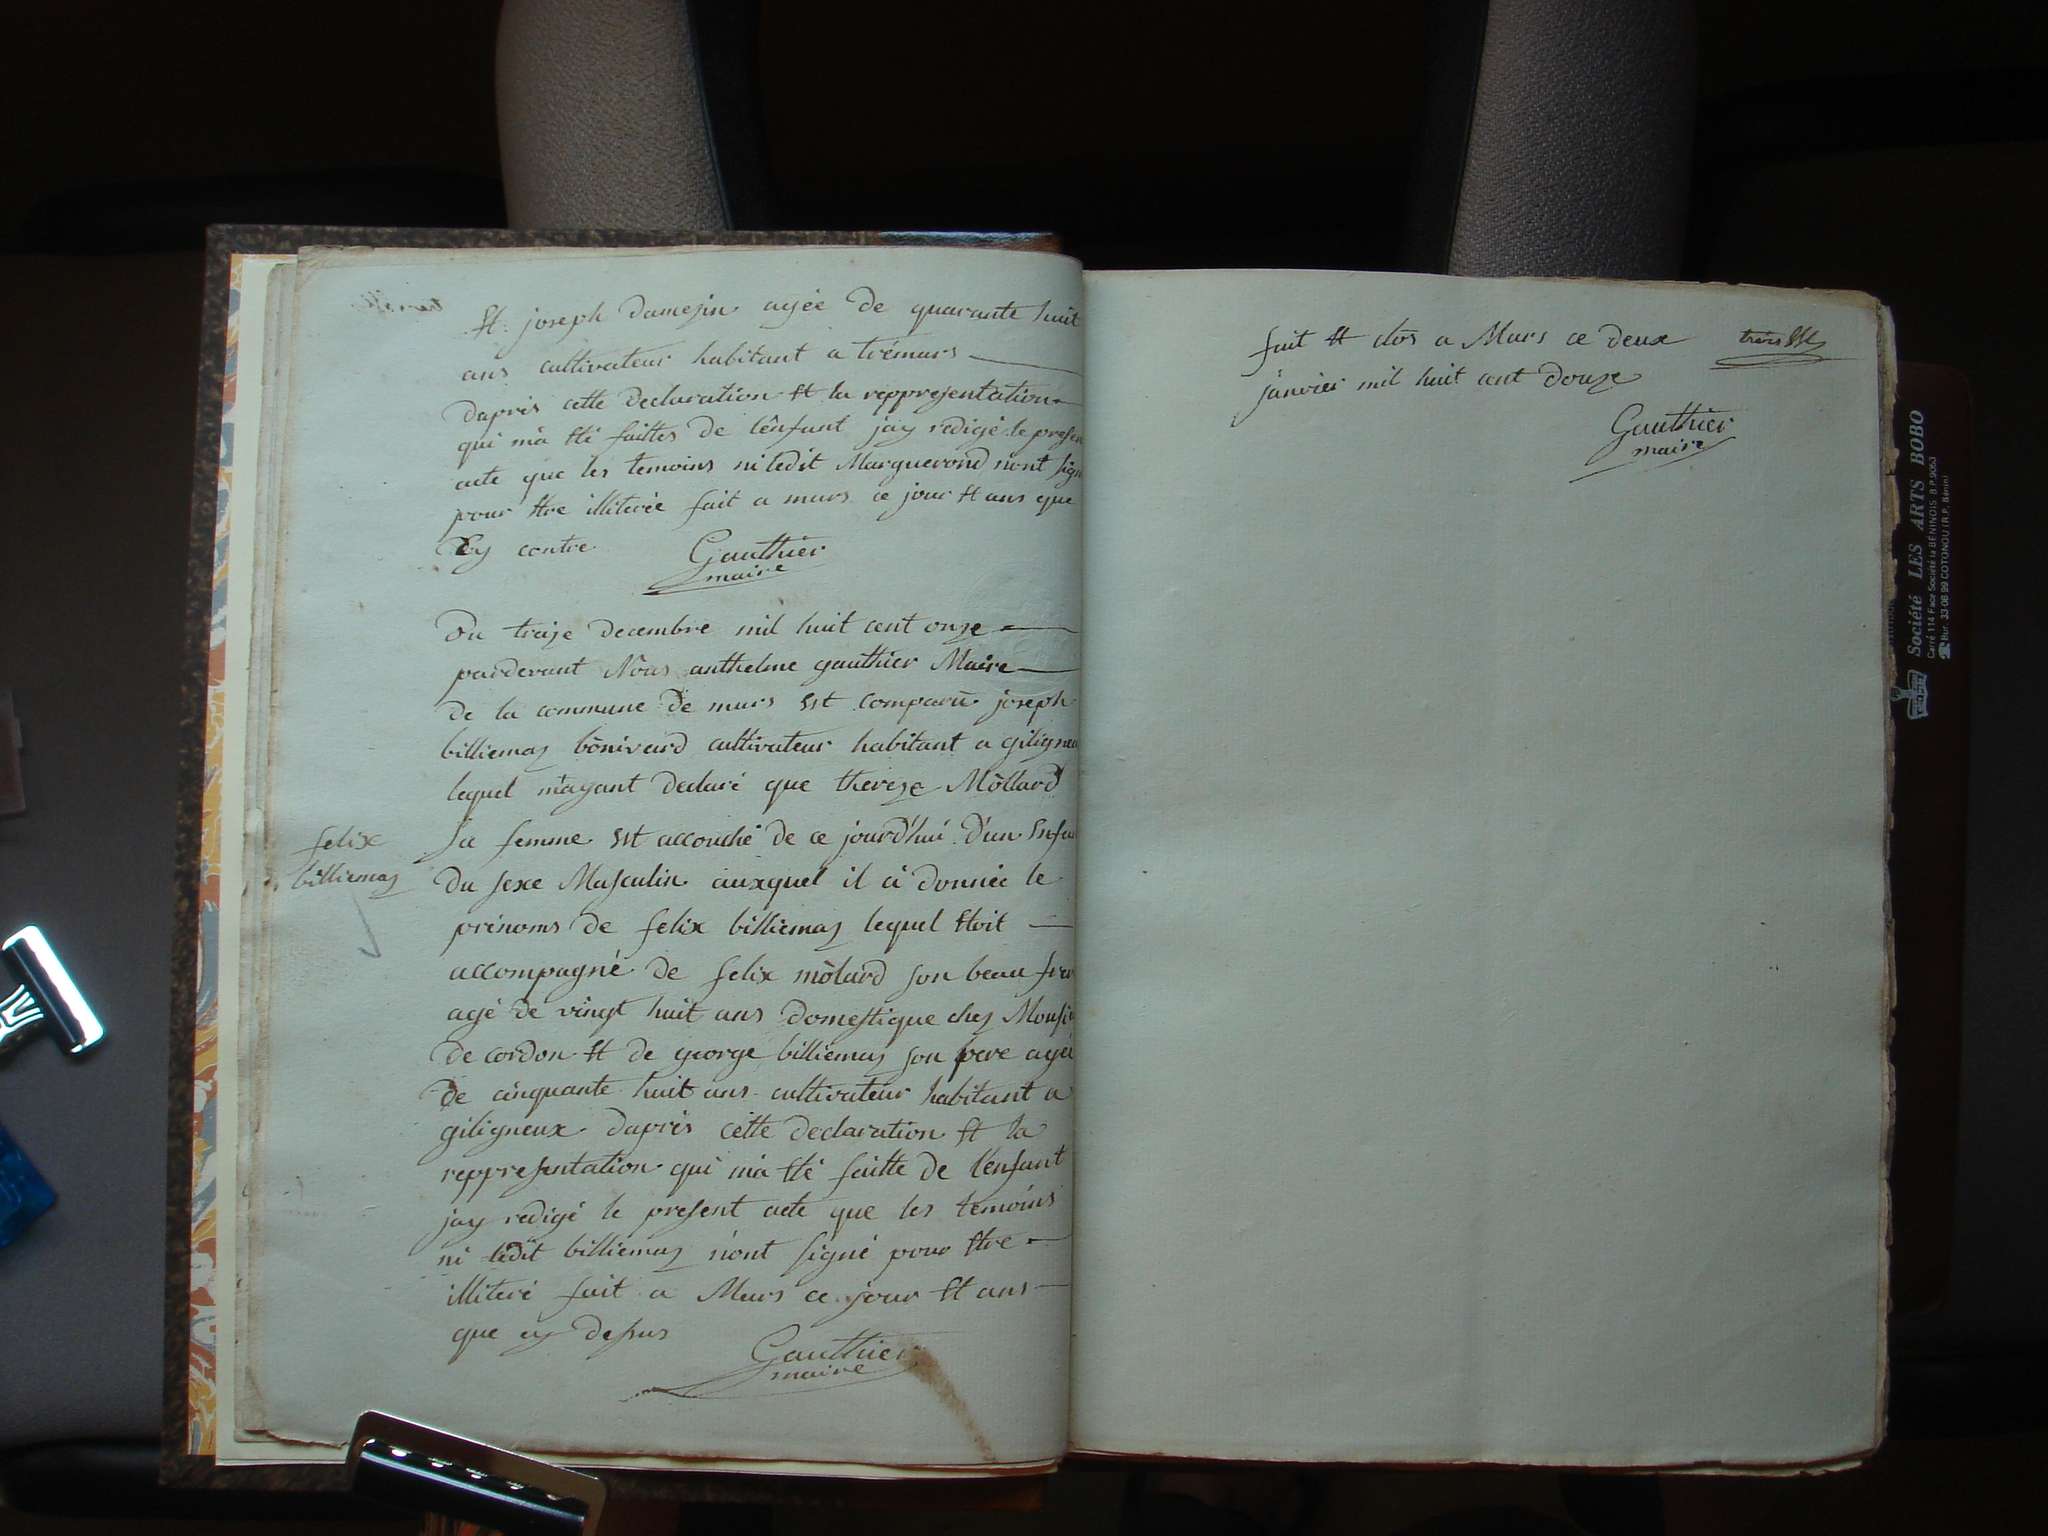 Et joseph Damesin agée de quarante huit
ans cultivateur habitant a trémurs
Daprés cette declaration Et la reppresentation
qui ma Eté faittes de lênfant jay redigé le presen
acte que les temoins ni ledit Marguerond n'ont sign
pour Etre illiterée fait a murs ce jour Et ans que
Cy contre
Gauthier
maire
Du traize decembre mil huit cent onze
parderant Nous anthelme gauthier Maire
de la commune de murs Est comparu joseph
billiemaz bônivard cultivateur habitant a giligneu
lequel m'ayant declaré que thereze Môllard
felix
billiemaz
sa femme Est accouché de ce jourd'hui d'un Enfan
du sexe Masculin auxquel il à donnée le
prénoms de felix billiemaz lequel Etoit
accompagné de felix môlard son beau frer
agé de vingt huit ans Domestique chez Monsie
de cordon Et de george billiemaz son pere agée
de cinquante huit ans cultivateur habitant a
giligneux daprés cette declaration Et la
reppresentation qui ma Eté faitte de lenfant
jay redigé le present acte que les temoins
ni ledit billiemaz n'ont signé pour Etre
illiteré fait a Murs ce jour Et ans
que cy dessus
Gauthier
maire
fait Et clos a Murs ce deux
janvier mil huit cent douze
Gauthier
maire
Société LES ARTS BOBO
Carré 114 Face Société la BÉNINOISE B.P. 9053
Bur. 33-06 99 COTONOU (R.P. Bénin)